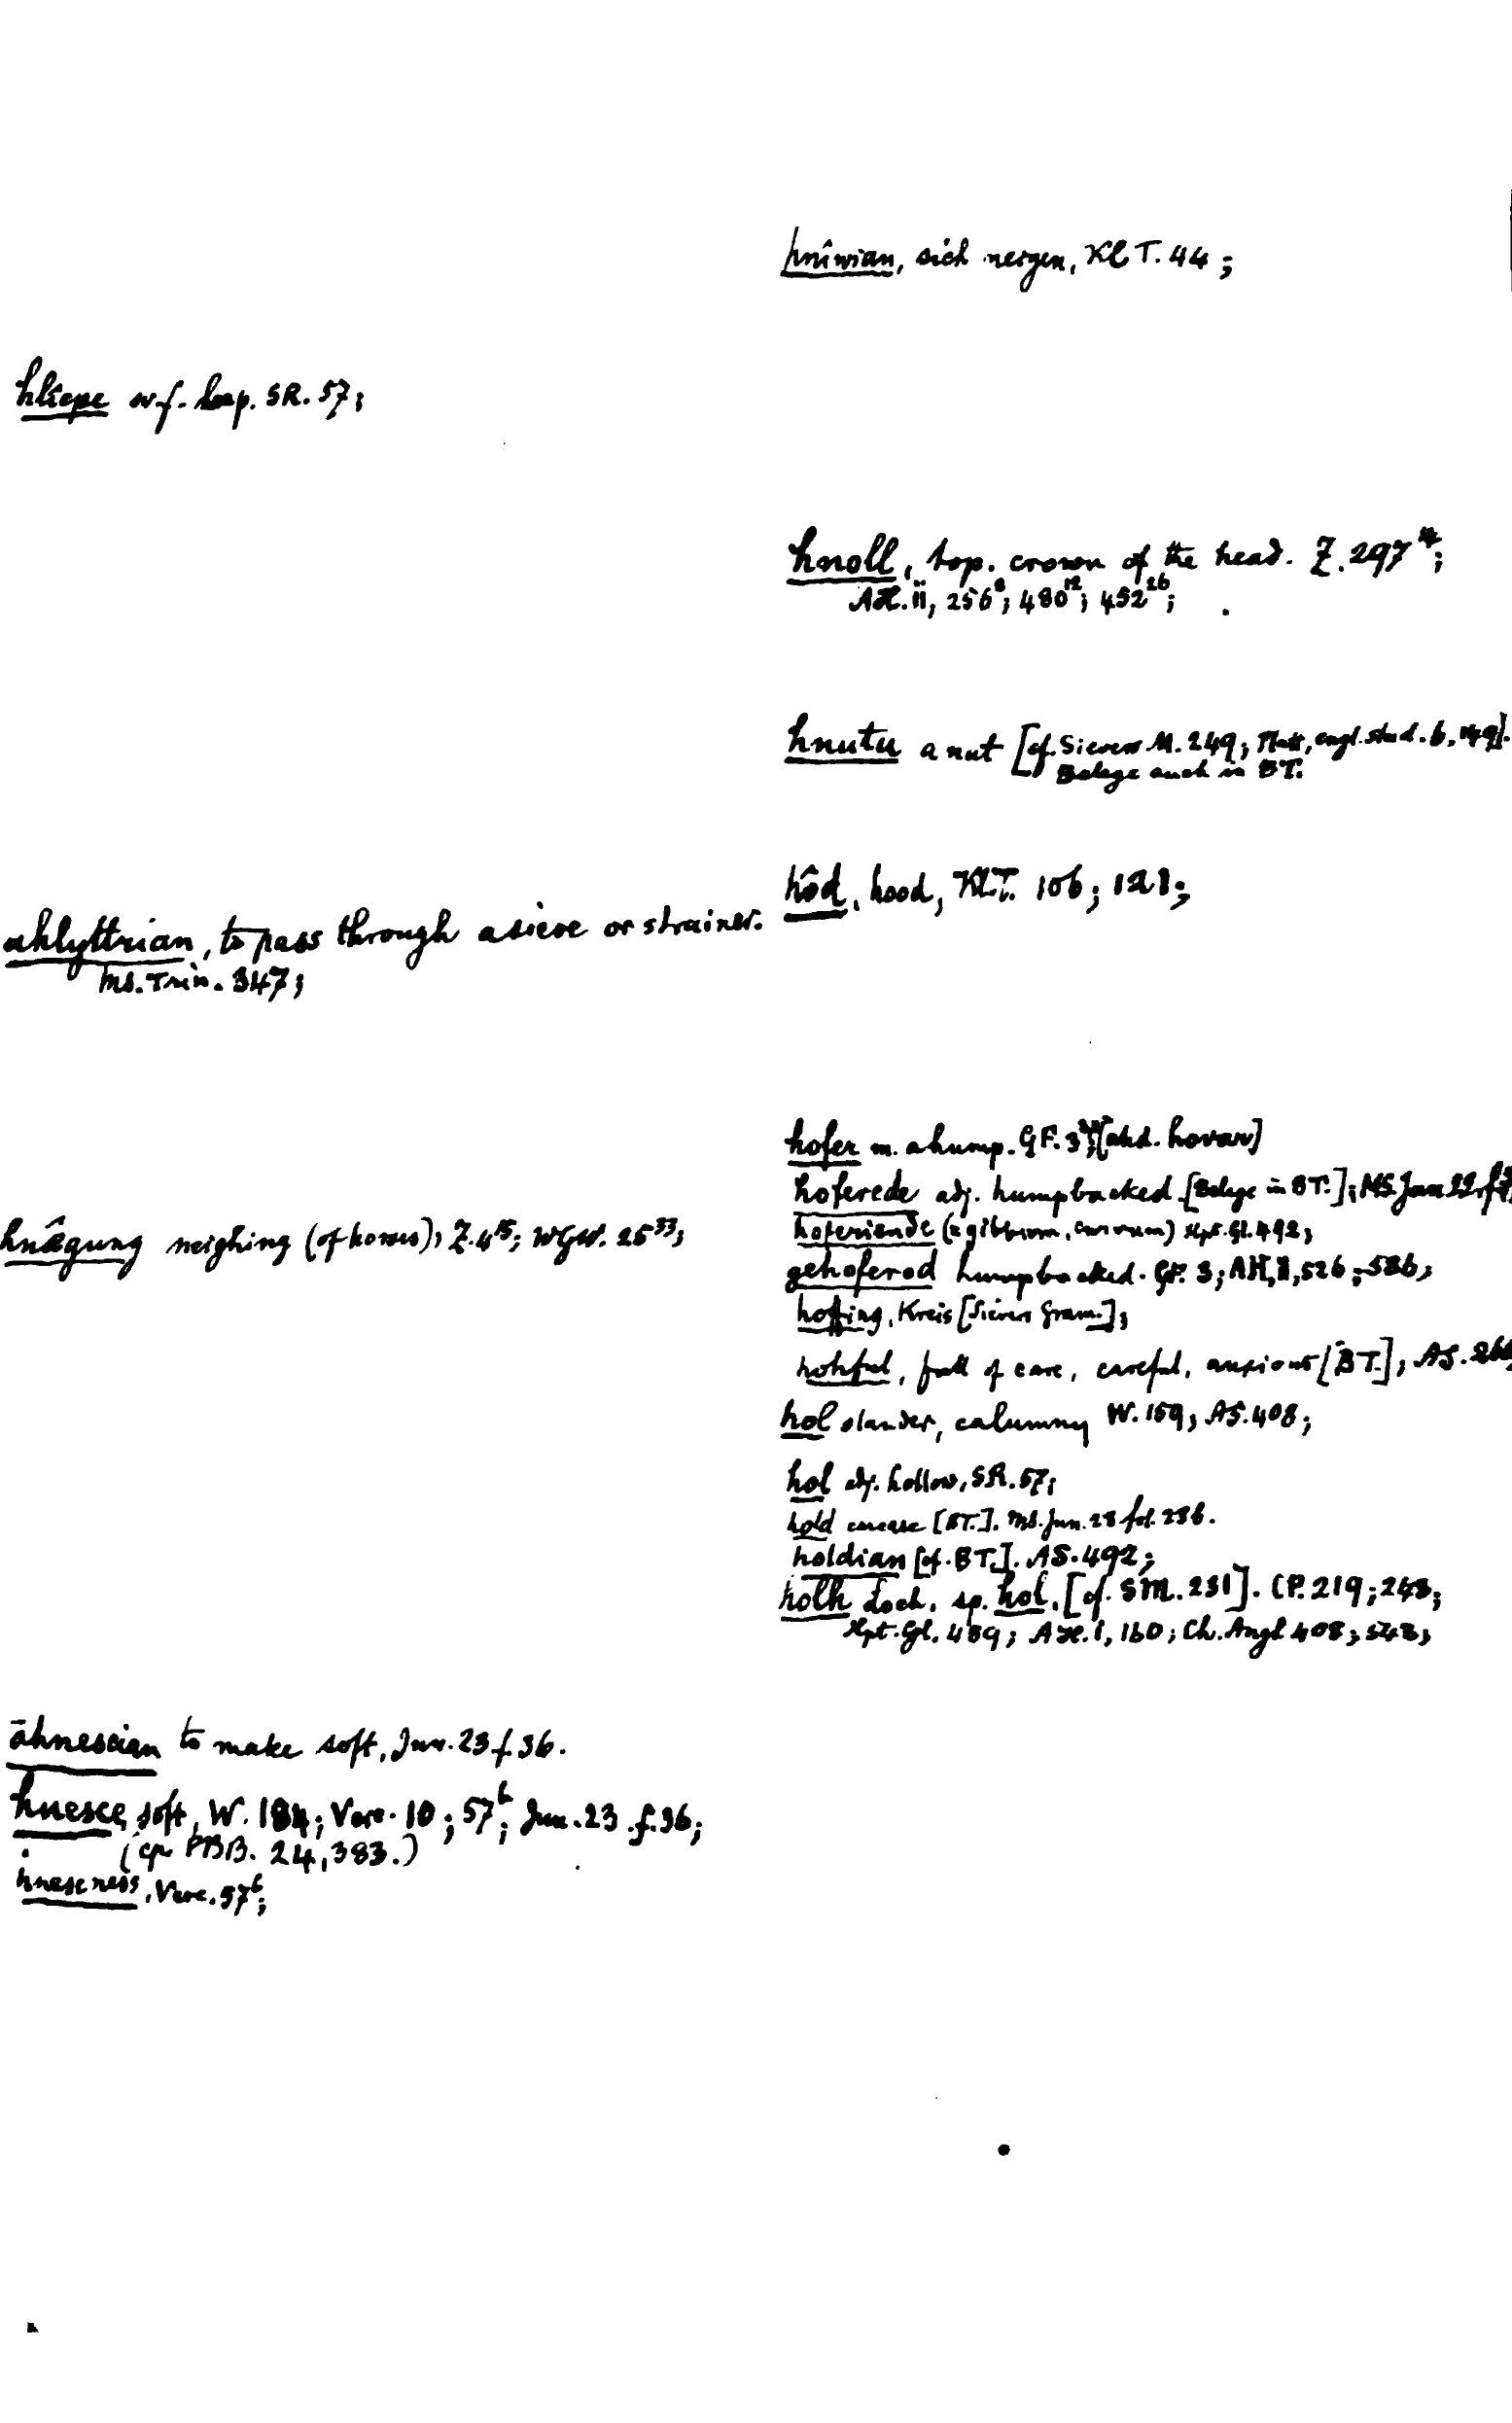 hlîepe wf. leap. SR. 57;
ahlyttrian, to pass through a sieve or strainer.
Ms. Trin. 347;
hnǣgung neighing (of horses); Z. 4¹⁵; WGW. 25³³;
āhnescian to make soft, Jun. 23 f. 36.
hnesce, soft, W. 184; Verc. 10; 57ᵇ; Jun. 23. f. 36;
(cp PBB. 24, 383.)
hnescness, Verc. 57ᵇ;
hnîwian, sich neigen, Kl T. 44;
hnoll, top. crown of the head. Z. 297;
AH. ii, 256⁸; 480¹²; 452²⁶;
hnutu a nut [cf. Sievers M. 249; Platt, engl. stud. 6, 149].
Belege auch in BT.
hôd, hood, KLT. 106; 121;
hofer m. a hump. GF. 3; [ahd. hovar]
hoferede adj. humpbacked [Belege in BT.]; MS. Jun 22.
hoferiende (gibbum, curvum) Hpt. Gl. 492;
gehoferod humpbacked. GF. 3; AH, I, 526; 586;
hofring, Kreis [Sievers Gram.];
hohful, full of care, careful, anxious [BT.]; AS.
hol slander, calumny W. 159; AS. 408;
hol adj. hollow, SR. 57;
hold carcase [BT.]. Ms. Jun. 23 fol. 236.
holdian [cf. BT.]. AS. 492;
holh Loch, sp. hol, [cf. SM. 231]. CP. 219; 243;
Hpt. Gl. 489; AH. I, 160; Ch. Angl 408; 548;